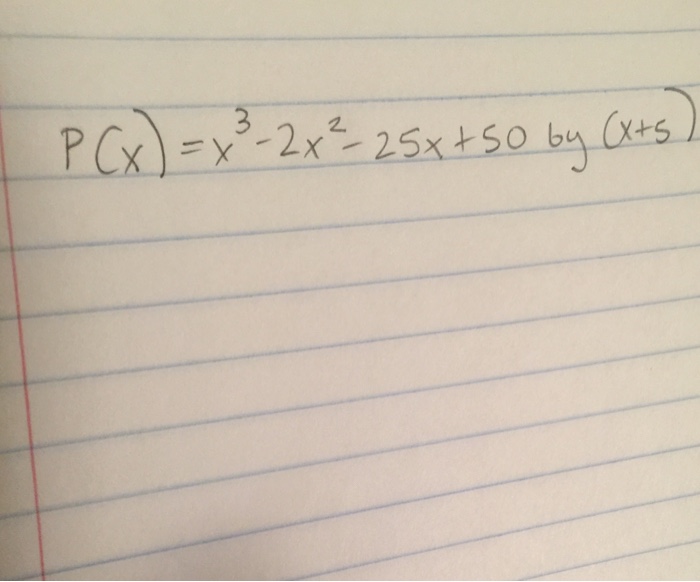 P(x) = x³ - 2x² - 25x + 50 by (x+5)